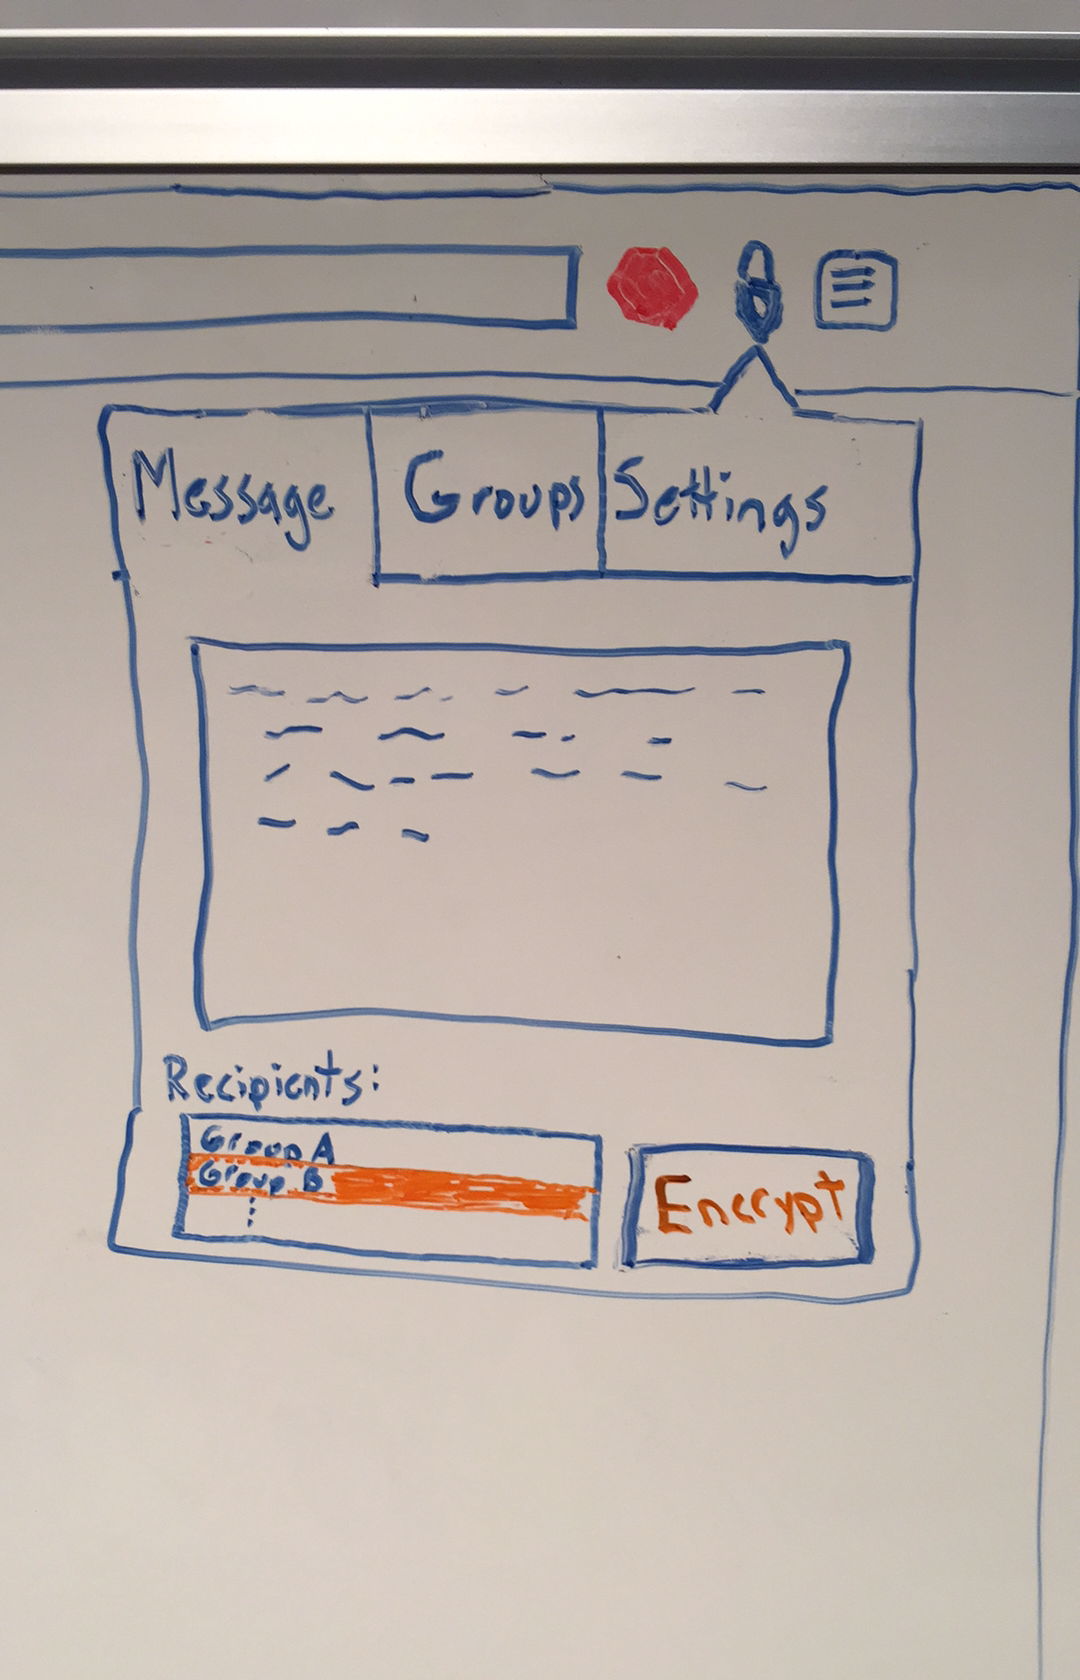 Message Groups Settings
Recipients:
Group A
Group B
Encrypt